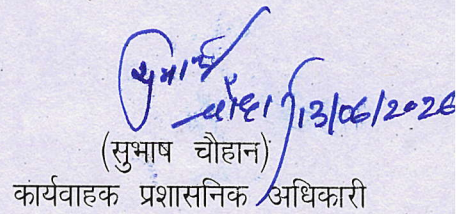 सुभाष
चौहान 13/06/2026
(सुभाष चौहान)
कार्यवाहक प्रशासनिक अधिकारी